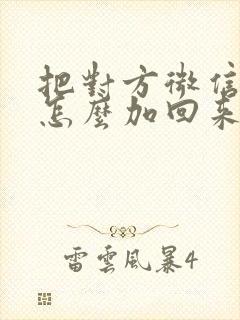 把對方微信
怎麼加回來
雷雲風暴4